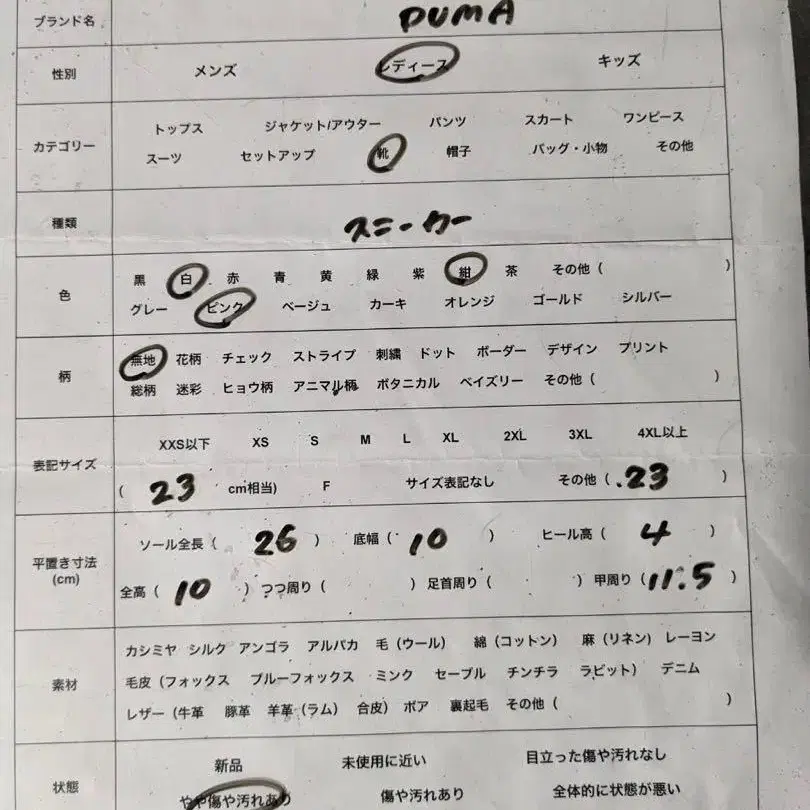 ブランド名 PUMA
性別 メンズ レディース キッズ
カテゴリー
トップス ジャケット/アウター パンツ スカート ワンピース
スーツ セットアップ 靴 帽子 バッグ・小物 その他
種類 スニーカー
色
黒 白 赤 青 黄 緑 紫 紺 茶 その他 ( )
グレー ピンク ベージュ カーキ オレンジ ゴールド シルバー
柄
無地 花柄 チェック ストライプ 刺繍 ドット ボーダー デザイン プリント
総柄 迷彩 ヒョウ柄 アニマル柄 ボタニカル ペイズリー その他 ( )
表記サイズ
XXS以下 XS S M L XL 2XL 3XL 4XL以上
( 23 cm相当) F サイズ表記なし その他 ( .23 )
平置き寸法
(cm)
ソール全長 ( 26 ) 底幅 ( 10 ) ヒール高 ( 4 )
全高 ( 10 ) つつ周り ( ) 足首周り ( ) 甲周り ( 11.5 )
素材
カシミヤ シルク アンゴラ アルパカ 毛 (ウール) 綿 (コットン) 麻 (リネン) レーヨン
毛皮 (フォックス ブルーフォックス ミンク セーブル チンチラ ラビット) デニム
レザー (牛革 豚革 羊革 (ラム) 合皮) ボア 裏起毛 その他 ( )
状態
新品 未使用に近い 目立った傷や汚れなし
やや傷や汚れあり 傷や汚れあり 全体的に状態が悪い